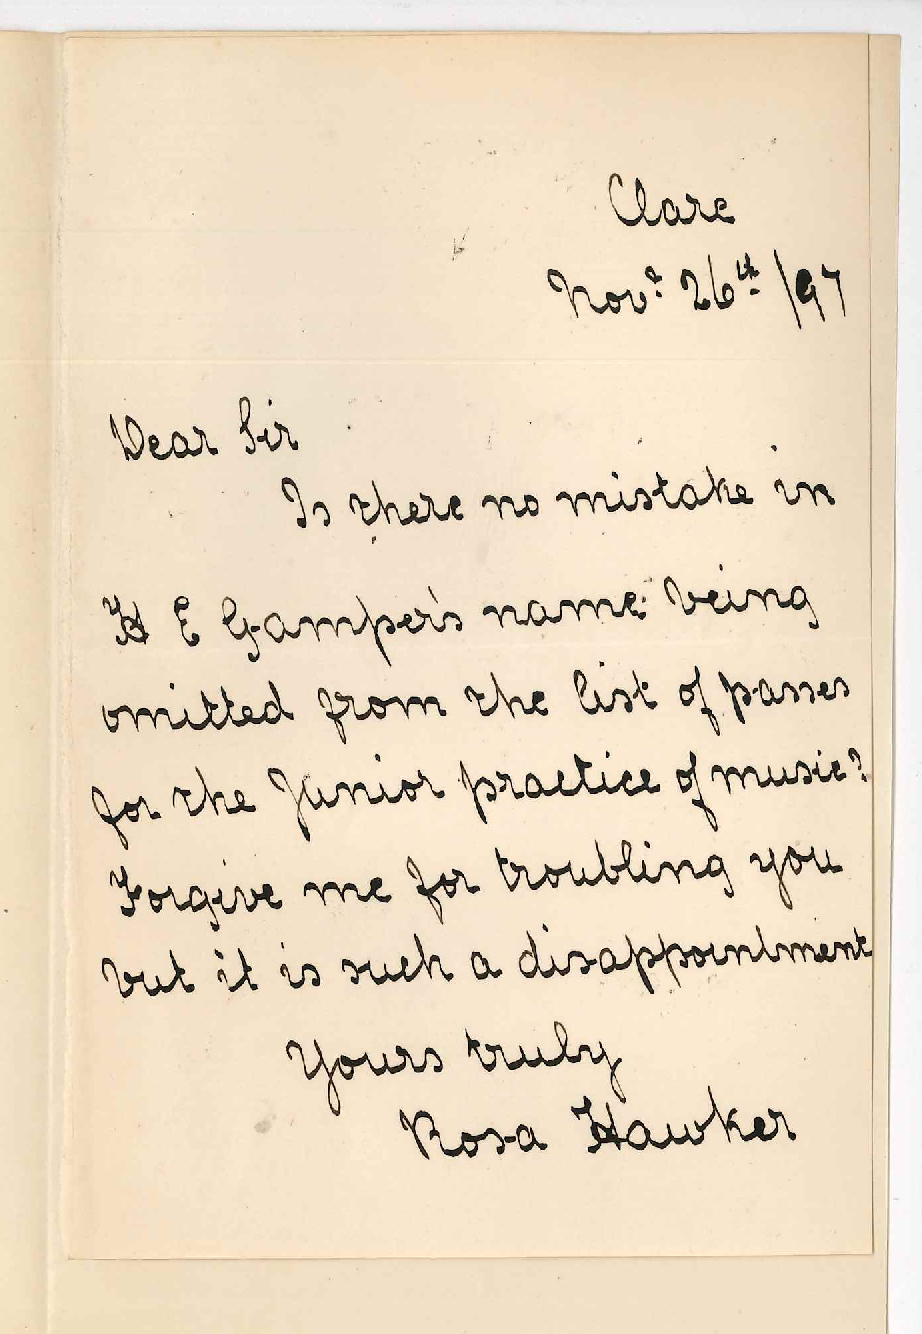 Clare
Novr. 26th /97
Dear Sir
Is there no mistake in
H E Gamper's name being
omitted from the list of passes
for the Junior practice of music?
Forgive me for troubling you
but it is such a disappointment
Yours truly
Rosa Hawker